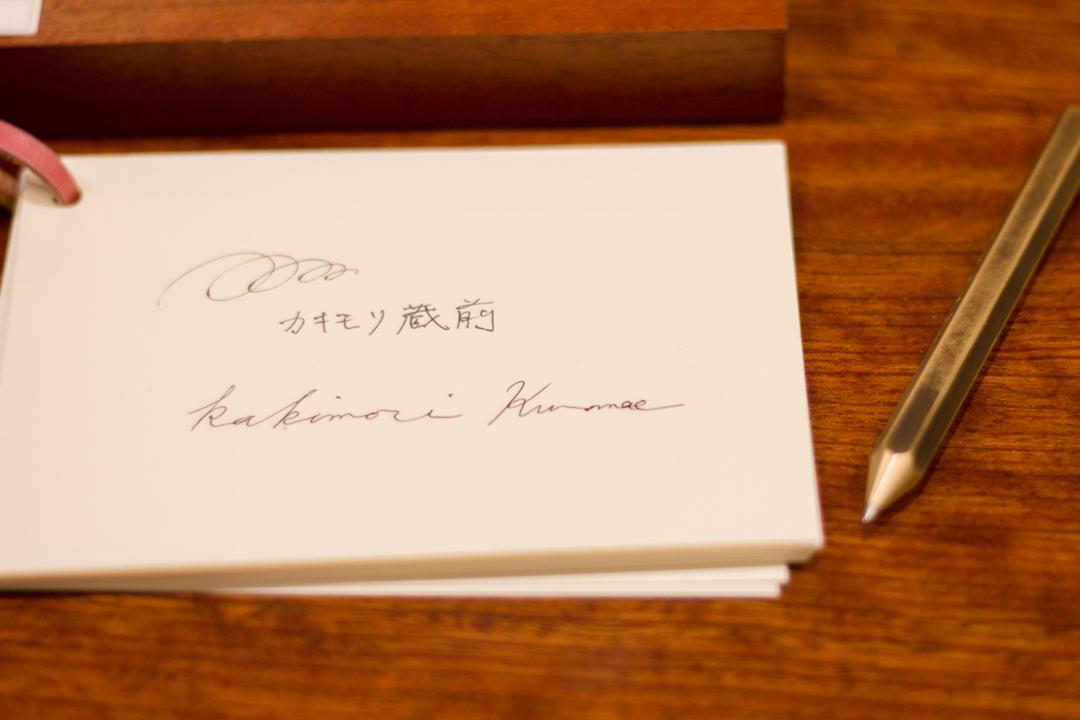 カキモリ 蔵前
kakimori Kuramae